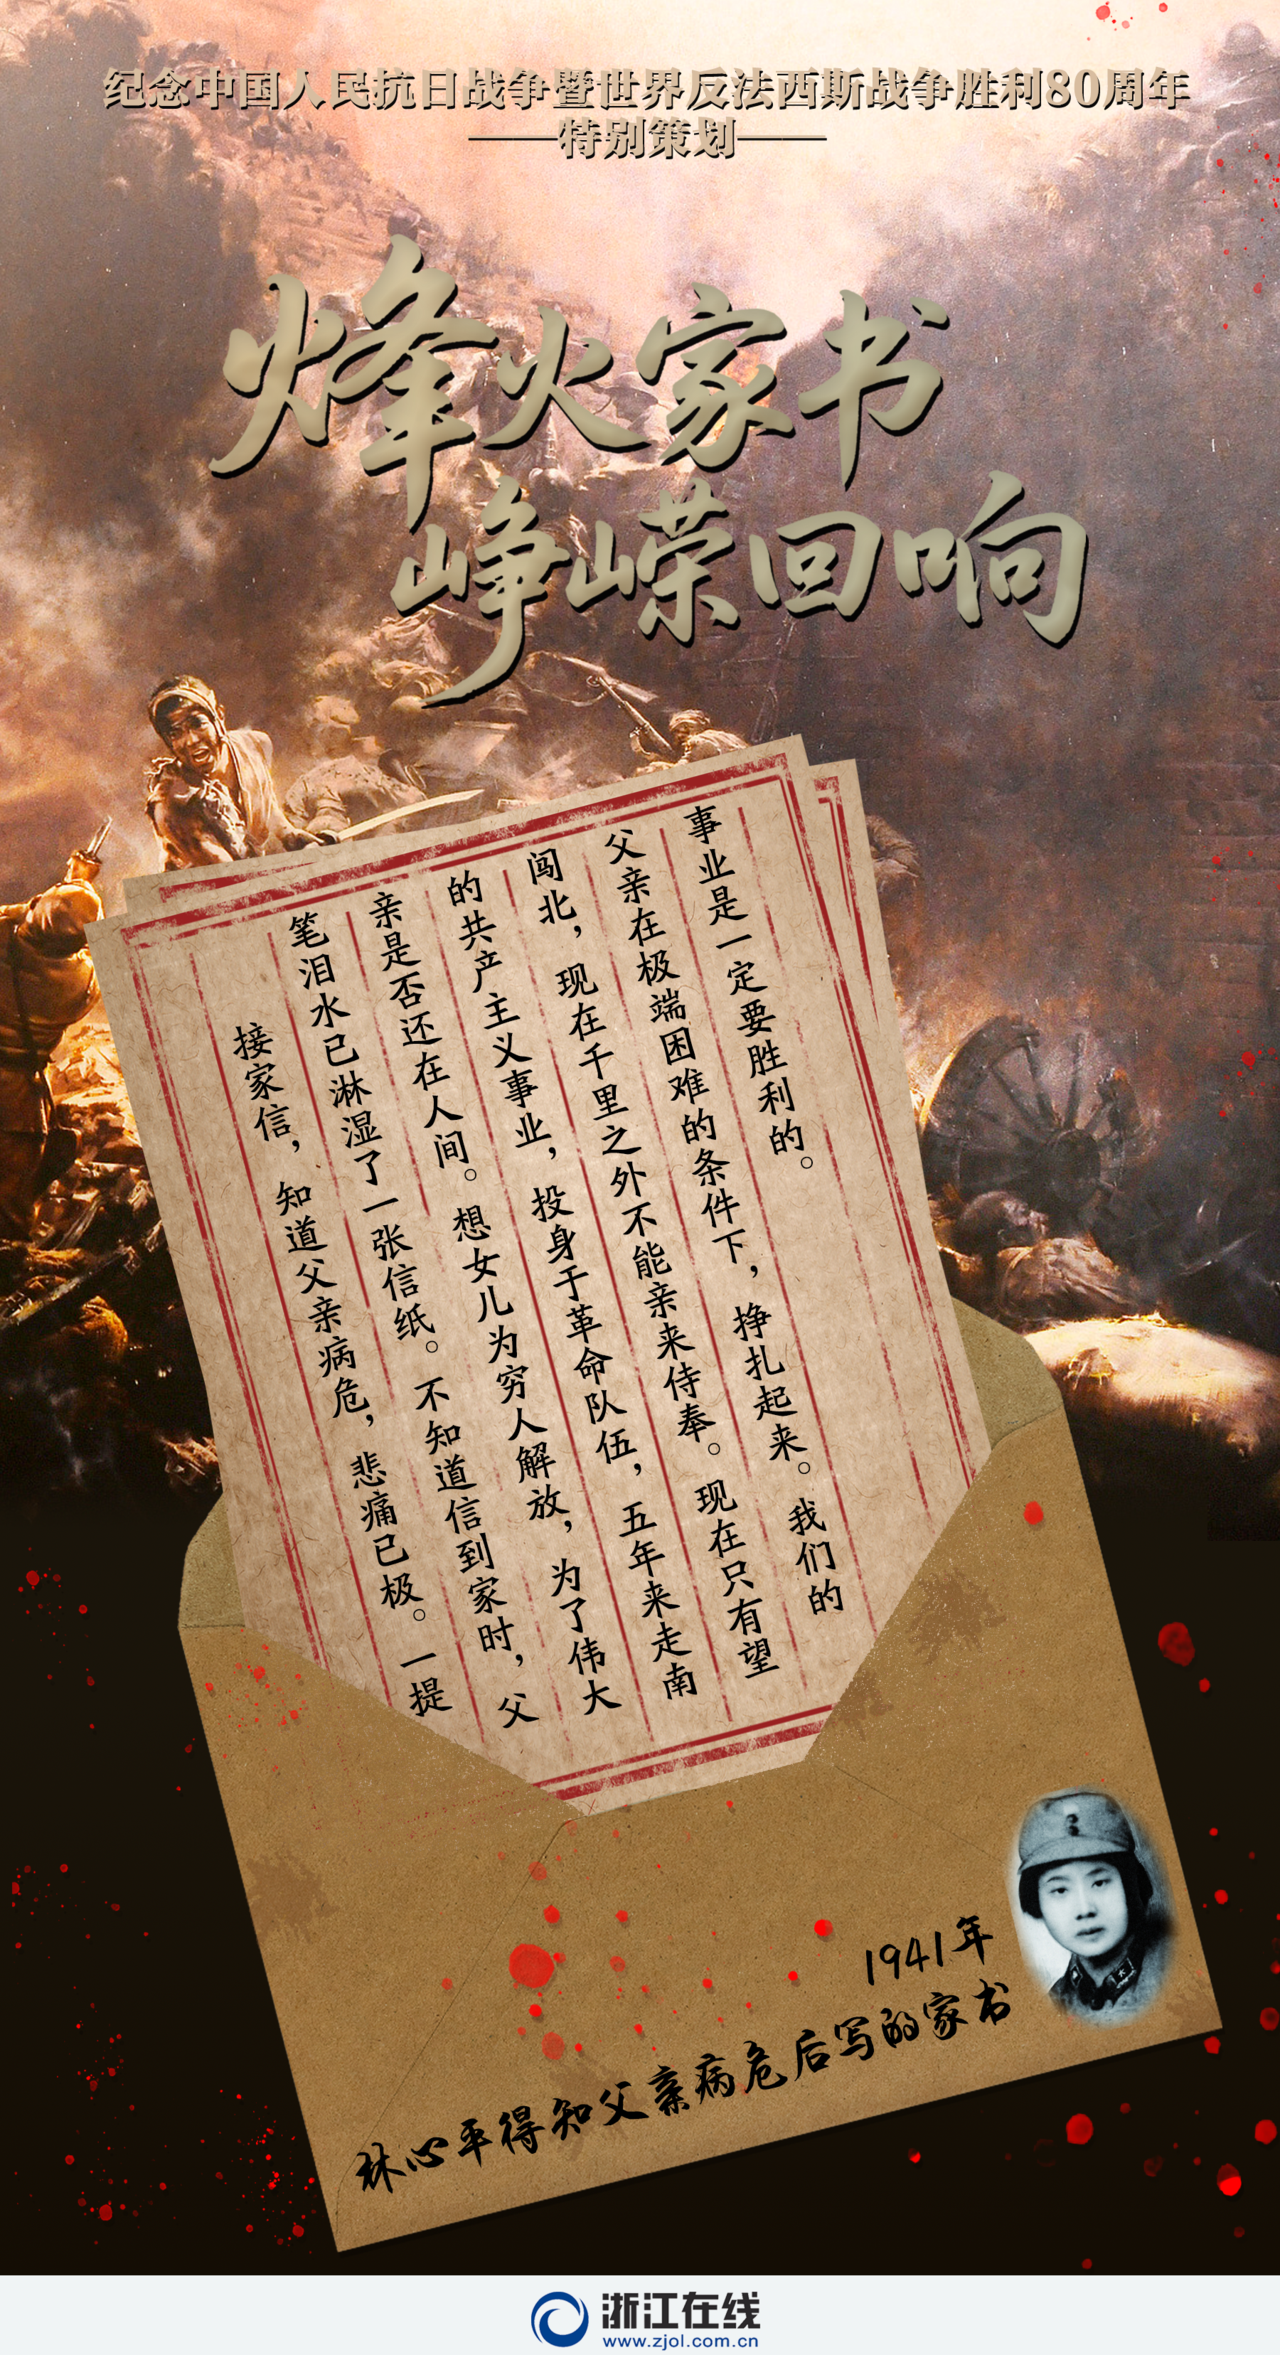 纪念中国人民抗日战争暨世界反法西斯战争胜利80周年
——特别策划——
烽火家书
峥嵘回响
接家信，知道父亲病危，悲痛已极。一提
笔泪水已淋湿了一张信纸。不知道信到家时，父
亲是否还在人间。想女儿为穷人解放，为了伟大
的共产主义事业，投身于革命队伍，五年来走南
闯北，现在千里之外不能亲来侍奉。现在只有望
父亲在极端困难的条件下，挣扎起来。我们的
事业是一定要胜利的。
1941年
林心平得知父亲病危后写的家书
浙江在线
www.zjol.com.cn